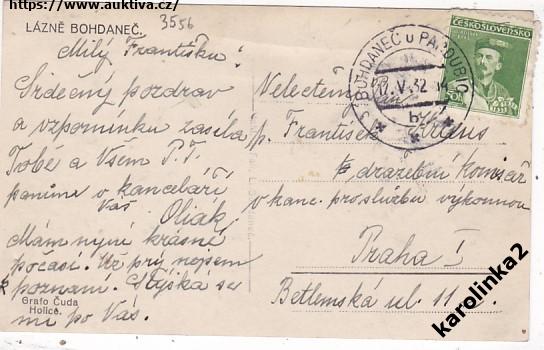 https://www.auktiva.cz/
3556
LÁZNĚ BOHDANEČ.
Milý Františku!
Srdečný pozdrav
a vzpomínku zasílá
Tobě a Všem P.T.
pánům v kanceláři
Váš Oliak
Mám nyní krásné
počasí. Už prý nejsem
poznaní. Stýská se
mi po Vás.
Grafo Čuda
Holice.
BOHDANEČ U PARDUBIC
17.V.32
ČESKOSLOVENSKO
Velectěný Pan
p. František Kraus
dražební komisař
v kanc. pro službu výkonnou
Praha I
Betlemská ul. 11
karolinka2